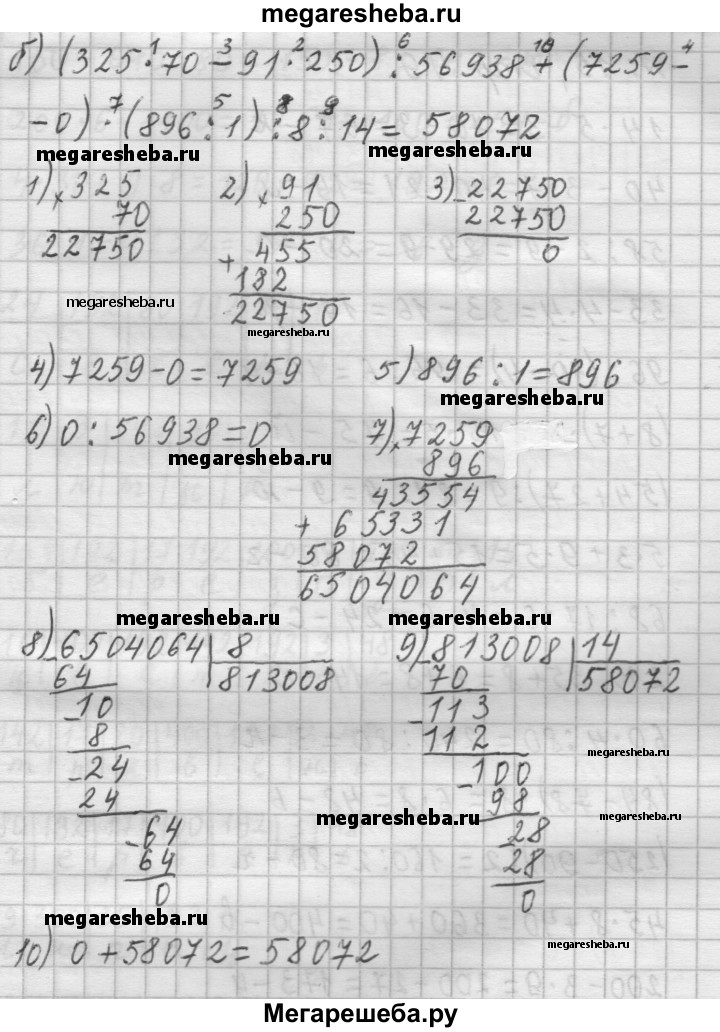 megaresheba.ru
б) (325·70 – 91·250) : 56938 + (7259 –
1 3 2 6 10 4
– 0) · (896 : 1) : 8 : 14 = 58072
7 5 8 9
megaresheba.ru megaresheba.ru
1) × 325 2) × 91 3) – 22750
70 250 22750
22750 455 0
+ 182
22750
megaresheba.ru megaresheba.ru
4) 7259 – 0 = 7259 5) 896 : 1 = 896
megaresheba.ru
6) 0 : 56938 = 0 7) × 7259
megaresheba.ru 896
43554
+ 65331
58072
6504064
megaresheba.ru megaresheba.ru
8) – 6504064 8 9) – 813008 14
64 813008 70 58072
– 10 – 113
8 112
– 24 – 100
24 98
– 64 – 28
64 28
0 0
megaresheba.ru
megaresheba.ru megaresheba.ru
megaresheba.ru megaresheba.ru
10) 0 + 58072 = 58072
Мегарешеба.ру